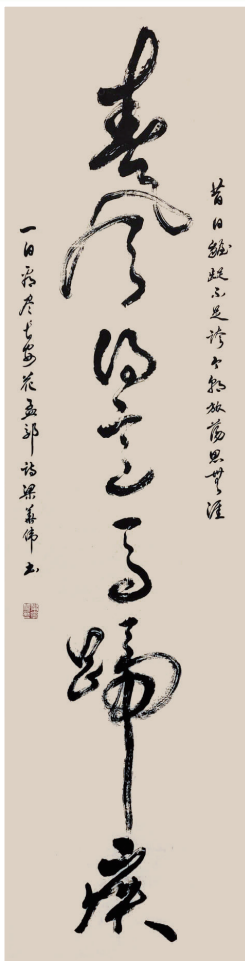 昔日齷齪不足誇今朝放蕩思無涯
春风得意马蹄疾
一日看尽长安花孟郊诗梁華伟书